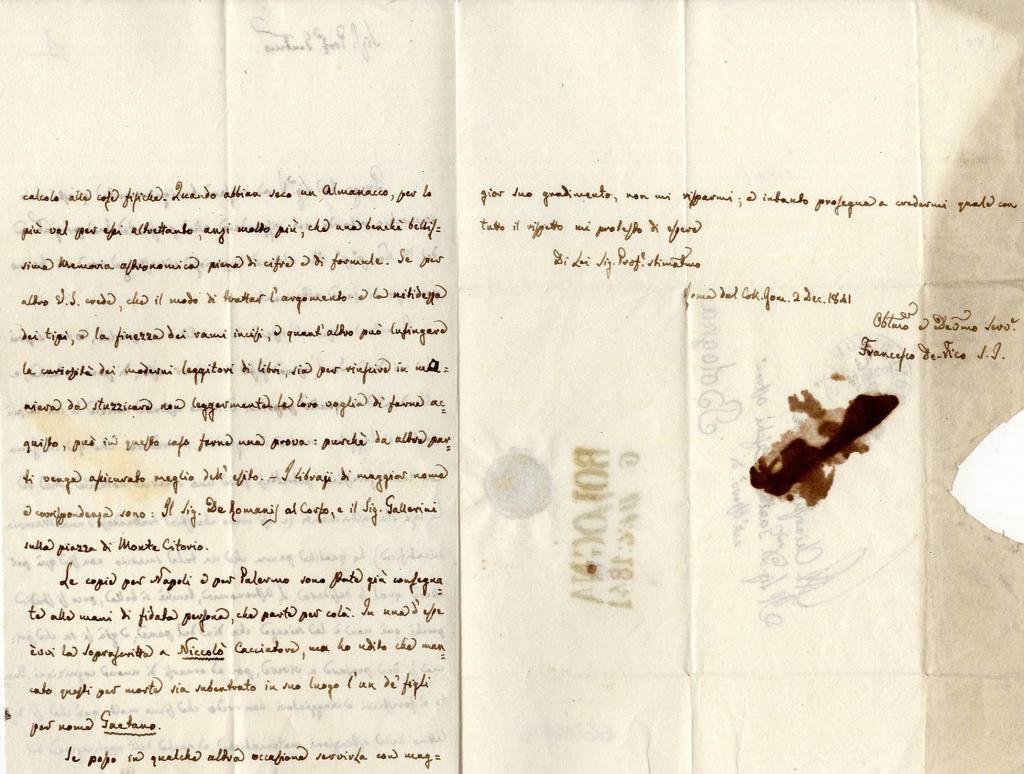 calcolo alle cose fisiche. Quando abbian seco un Almanacco, per lo
più val per essi altrettanto, anzi molto più, che una benchè bellis-
sima Memoria astronomica piena di cifre e di formule. Se per
altro V.S. crede, che il modo di trattar l'argomento e la nitidezza
dei tipi, e la finezza dei rami incisi, e quant'altro può lusingare
la curiosità dei moderni leggitori di libri, sia per riuscire in ma-
niera da stuzzicare non leggermente la loro voglia di farne ac-
quisto, può in questo caso farne una prova: purchè da altre par-
ti venga assicurato meglio dell'esito. – I libraj di maggior nome
e corrispondenza sono: Il Sig. De Romanis al Corso, e il Sig. Gallerini
sulla piazza di Monte Citorio.
Le copie per Napoli e per Palermo sono state già consegna-
te alle mani di fidata persona, che parte per colà. In una d'esse
èvvi la soprascritta a Niccolò Cacciatore, ma ho udito che man-
cato questi per morte sia subentrato in suo luogo l'un de' figli
per nome Gaetano.
Se posso in qualche altra occasione servirla con mag-
gior suo gradimento, non mi risparmi; e intanto prosegua a credermi quale con
tutto il rispetto mi protesto di essere
Di Lei Sig. Prof. stimatmo
Roma dal Coll. Rom. 2 Dec. 1841
Obbmo e Devmo Serv.
Francesco De-Vico S.J.
BOLOGNA
6 DEC. 1841
Bologna